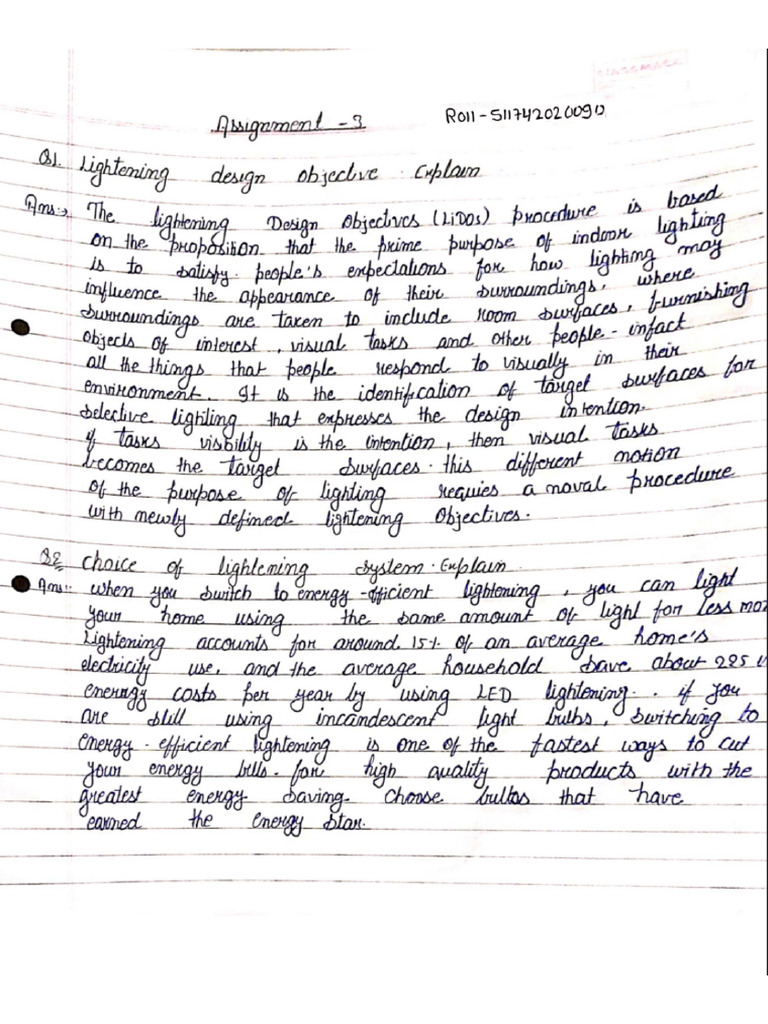 Assignment - 3
Roll - 511742020090
Q1. Lightening design objective Explain
Ans:→ The lightening Design Objectives (LiDOs) procedure is based
on the proposition that the prime purpose of indoor lighting
is to satisfy people's expectations for how lighting may
influence the appearance of their surroundings, where
surroundings are taken to include room surfaces, furnishing
objects of interest, visual tasks and other people - infact
all the things that people respond to visually in their
environment. It is the identification of target surfaces for
selective lighting that expresses the design intention.
if tasks visibility is the intention, then visual tasks
becomes the target surfaces. this different notion
of the purpose of lighting requies a noval procedure
with newly defined lightening objectives.
Q2 choice of lightening system. Explain
Ans:- when you switch to energy-efficient lightening, you can light
your home using the same amount of light for less
Lightening accounts for around 15% of an average home's
electricity use, and the average household save about 225
energy costs per year by using LED lightening. if you
are still using incandescent light bulbs, switching to
energy-efficient lightening is one of the fastest ways to cut
your energy bills. for high quality products with the
greatest energy saving choose bulbs that have
earned the energy star.